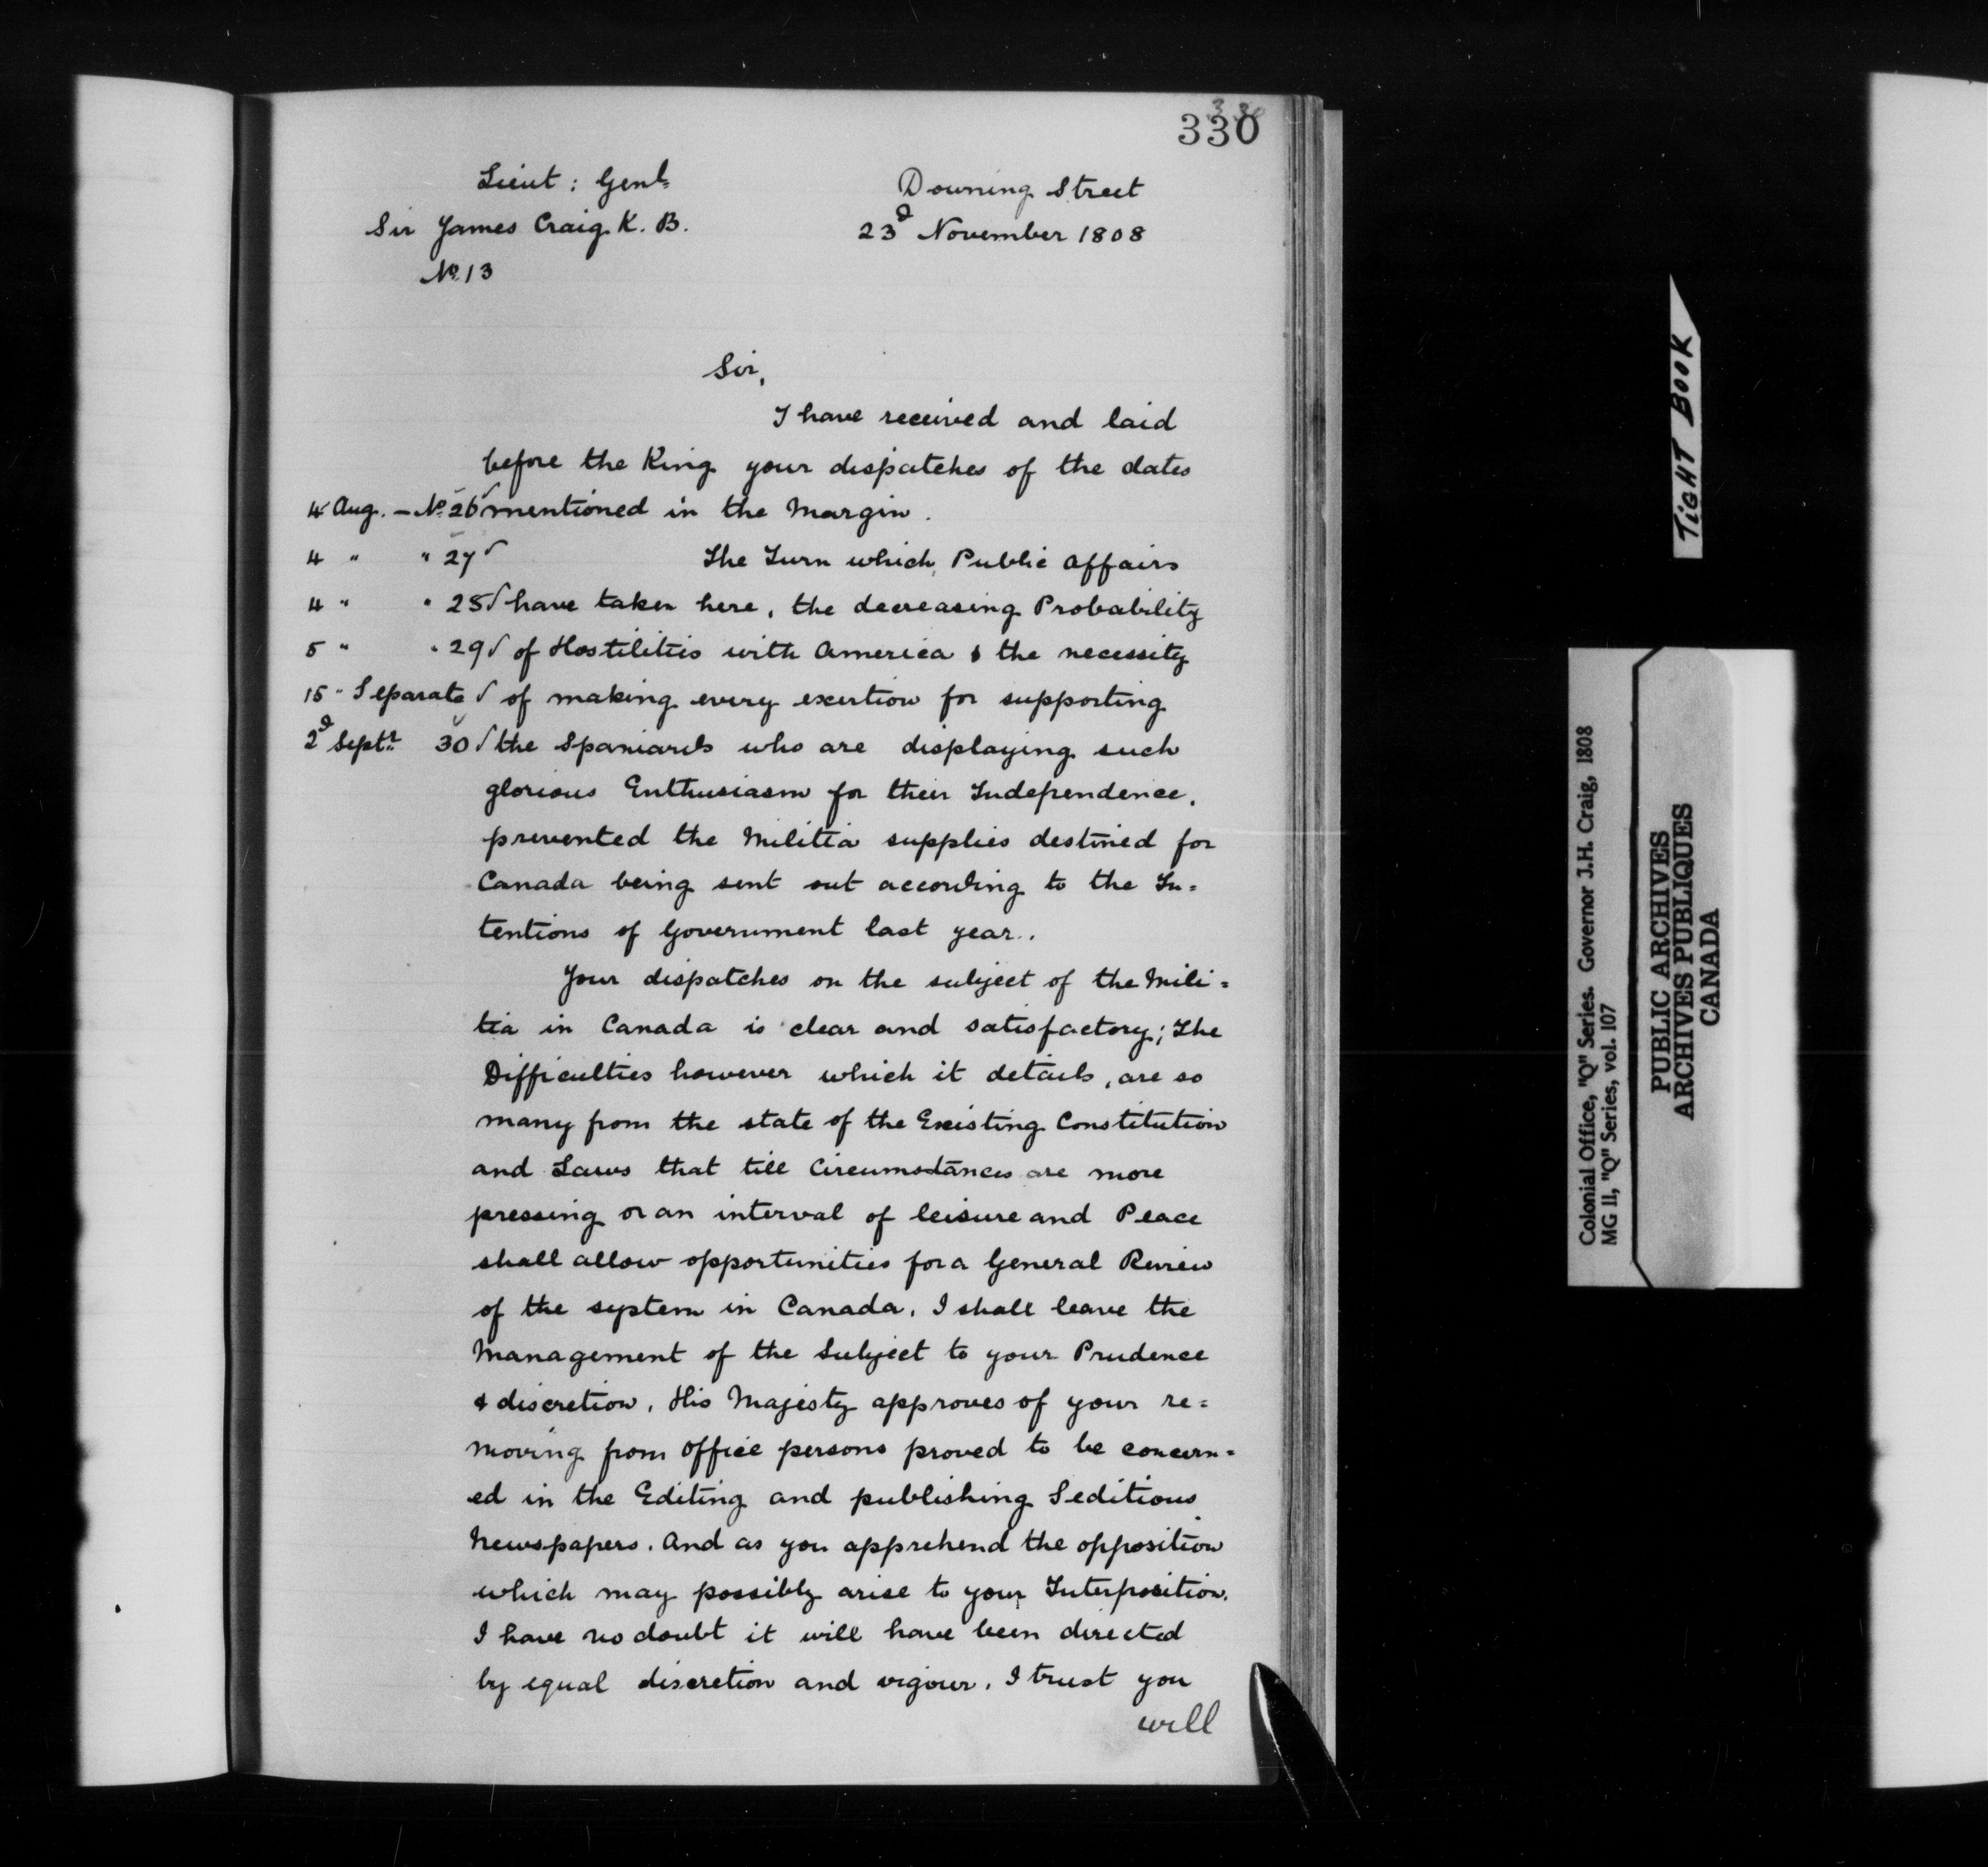 330
330
Lieut: Genl.
Downing Street
Sir James Craig K. B.
23d November 1808
No. 13
Sir,
I have received and laid
before the King your dispatches of the dates
4 Aug. - No. 26 √ mentioned in the Margin.
4 " " 27 √ The Turn which Public Affairs
4 " " 28 √ have taken here, the decreasing Probability
5 " " 29 √ of Hostilities with America & the necessity
15 " Separate √ of making every exertion for supporting
2d Septr. 30 √ the Spaniards who are displaying such
glorious Enthusiasm for their Independence,
prevented the Militia supplies destined for
Canada being sent out according to the In=
tentions of Government last year.
Your dispatches on the subject of the Mili=
tia in Canada is clear and satisfactory; The
Difficulties however which it details, are so
many from the state of the Existing Constitution
and Laws that till Circumstances are more
pressing or an interval of leisure and Peace
shall allow opportunities for a General Review
of the system in Canada, I shall leave the
Management of the Subject to your Prudence
& discretion. His Majesty approves of your re=
moving from Office persons proved to be concern=
ed in the Editing and publishing Seditious
Newspapers. And as you apprehend the opposition
which may possibly arise to your Interposition,
I have no doubt it will have been directed
by equal discretion and vigour. I trust you
will
TIGHT BOOK
Colonial Office, "Q" Series. Governor J.H. Craig, 1808
MG 11, "Q" Series, vol. 107
PUBLIC ARCHIVES
ARCHIVES PUBLIQUES
CANADA